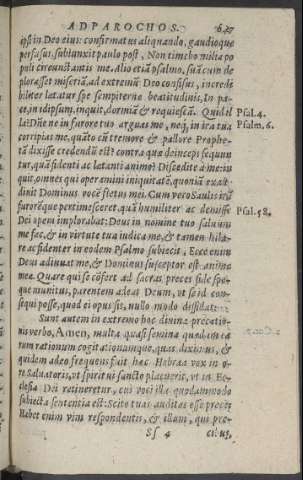 AD PAROCHOS.
spei in Deo eius: confirmatus aliquando, gaudioque
perfusus, subiunxit paulo post, Non timebo milia po
puli circundantis me. Alio etiā psalmo, suā cum de
plorasset miseriā, ad extremū Deo confisus, incredi
biliter lætatur spe sempiternæ beatitudinis, In pa
ce, in idipsum, inquit, dormiā & requiescā. Quid il
la? Dñe ne in furore tuo arguas me, neq; in ira tua
corripias me, quāto cū tremore & pallore Prophe-
tā dixisse credendū est? contra quæ deinceps sequun
tur, quā fidenti ac lætanti animo? Discedite à me, in
quit, omnes qui operamini iniquitatē, quoniā exau
dinit Dominus vocē fletus mei. Cum verò Saulis irā
furorēque pertimesceret, quā humiliter ac demisse
Dei opem implorabat: Deus in nomine tuo saluum
me fac, & in virtute tua iudica me, & tamen hila-
rè ac fidenter in eodem Psalmo subiecit, Ecce enim
Deus adiuuat me, & Dominus susceptor est animæ
meæ. Quare qui se cōfert ad sacras preces fide spe-
que munitus, parentem adeat Deum, vt se id con-
sequi posse, quod ei opus sit, nullo modo diffidat.
Sunt autem in extremo hoc diuinæ precatio-
nis verbo, Amen, multa quasi semina quædam ea
rum rationum cogitationumque, quas diximus, &
quidem adeo frequens fuit hæc Hebræa vox in o-
re Saluatoris, vt spiritui sancto placuerit, vt in Ec-
clesia Dei retineretur, cui voci illa quodammodo
subiecta sententia est: Scito tuas auditas esse preces
Habet enim vim respondentis, & illum, qui pre-
Sſ 4 cibus,
Psal. 4.
Psalm. 6.
Psal. 58.